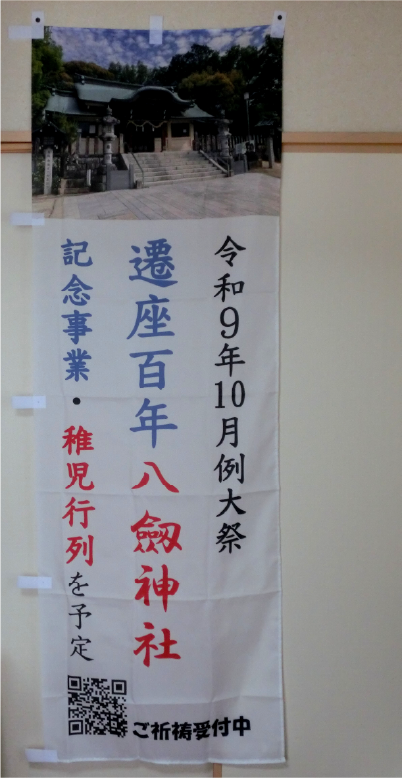 令和9年10月例大祭
遷座百年八劔神社
記念事業・稚児行列を予定
ご祈祷受付中